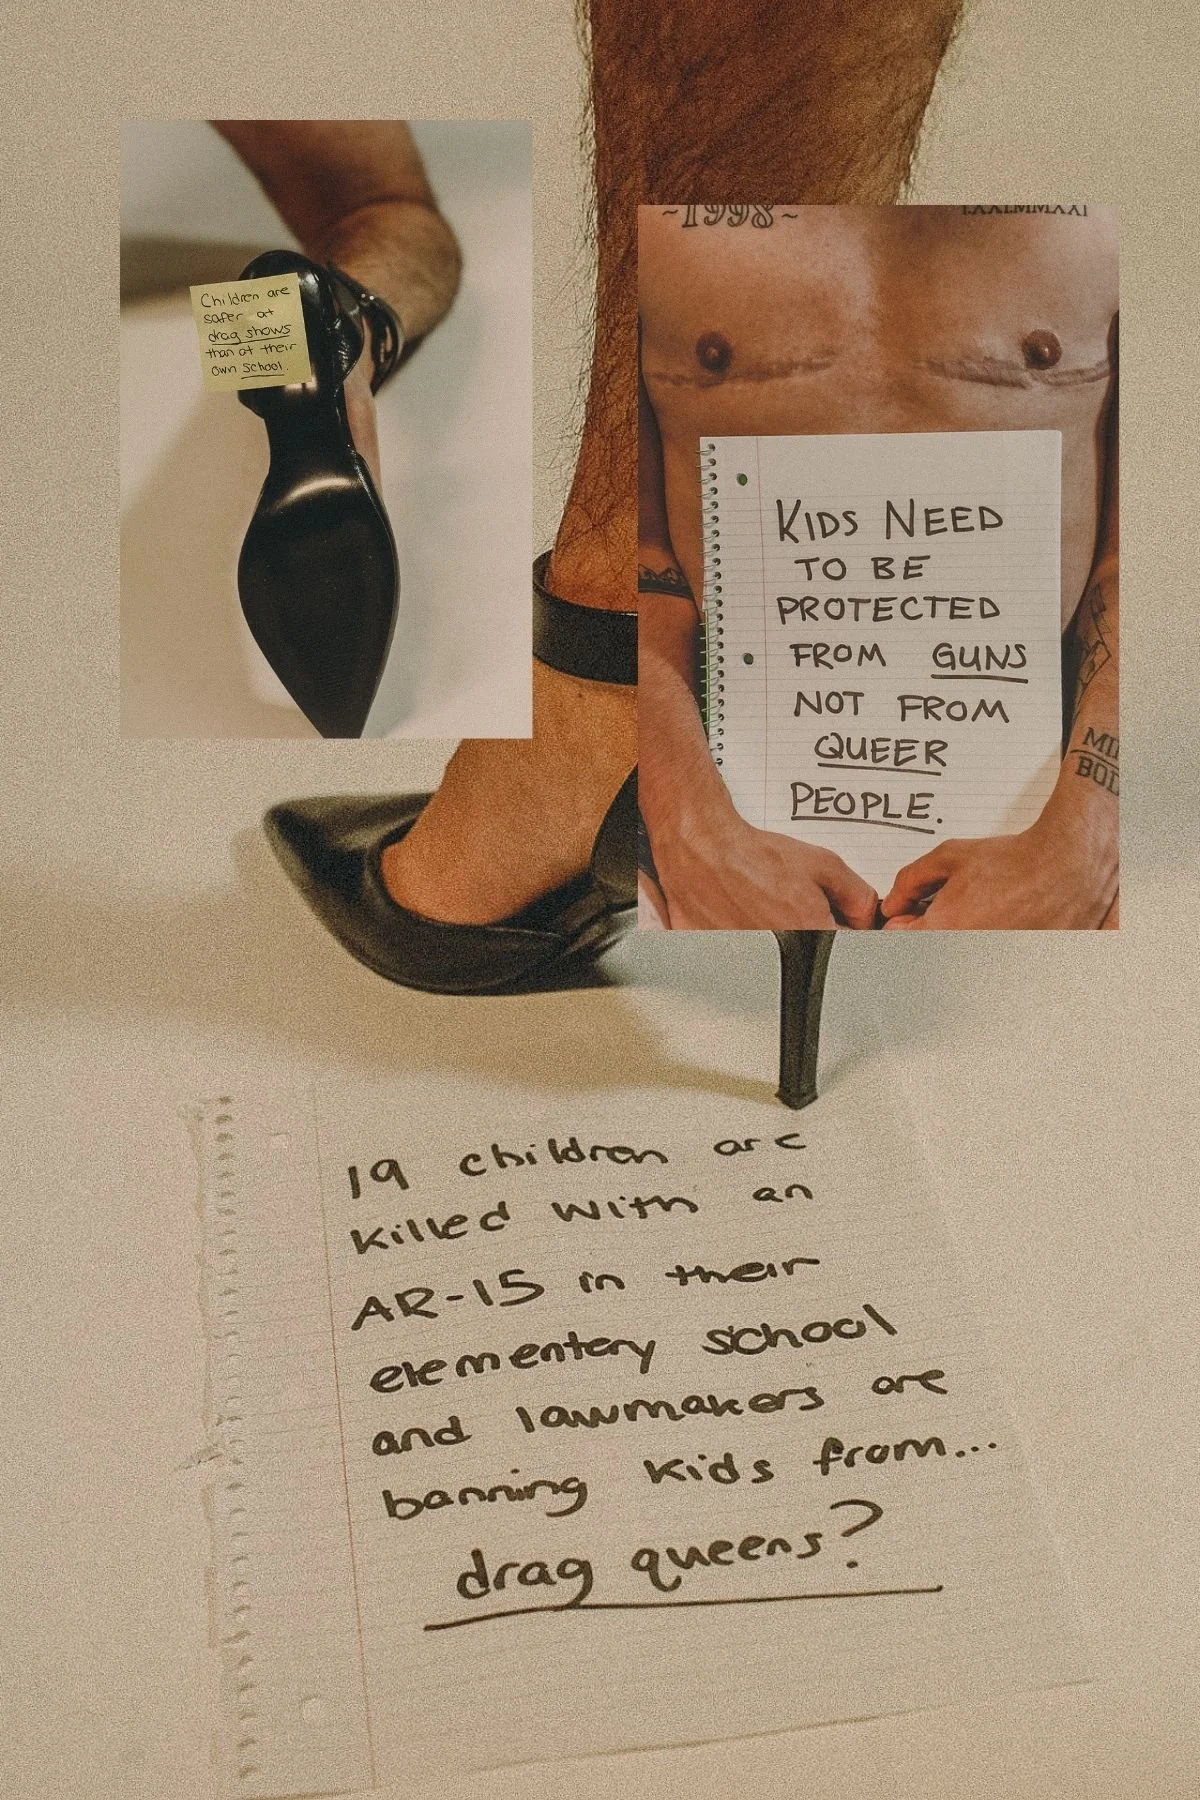 Children are
safer at
drag shows
than at their
own school.
~1998~
KIDS NEED
TO BE
PROTECTED
FROM GUNS
NOT FROM
QUEER
PEOPLE.
19 children are
killed with an
AR-15 in their
elementery school
and lawmakers are
banning kids from...
drag queens?